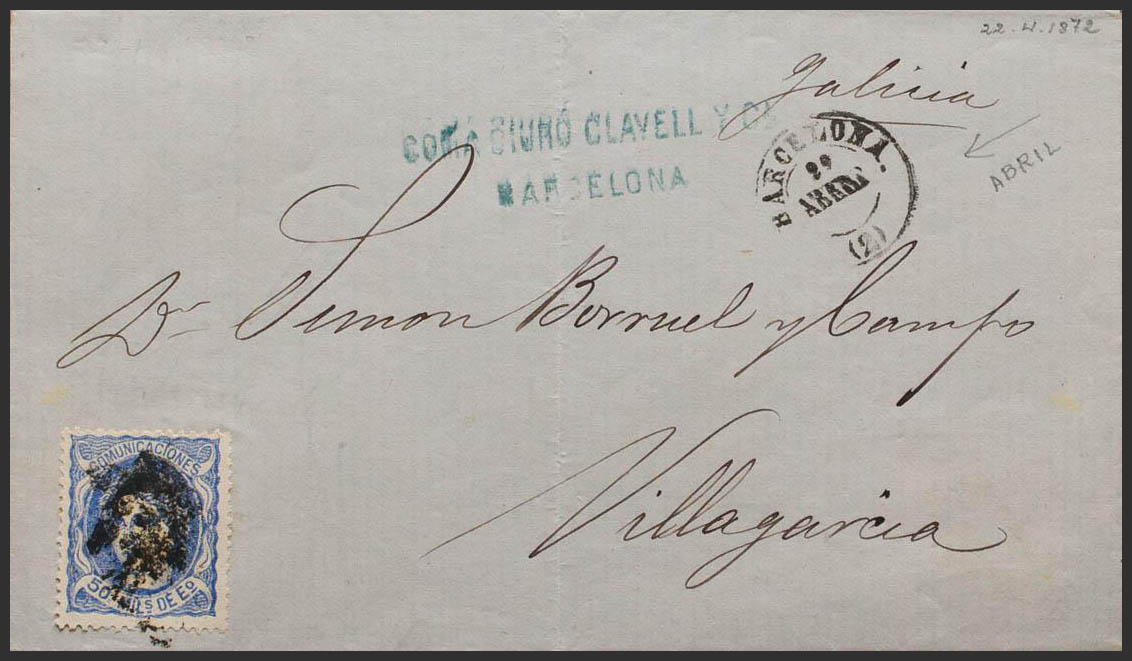 22.4.1872
Galicia
COMA CIURÓ CLAVELL Y Cª
BARCELONA
BARCELONA.
29
ABR
(2)
ABRIL
Dn Simon Borruel y Campo
Villagarcia
COMUNICACIONES
50 MILS DE Eo